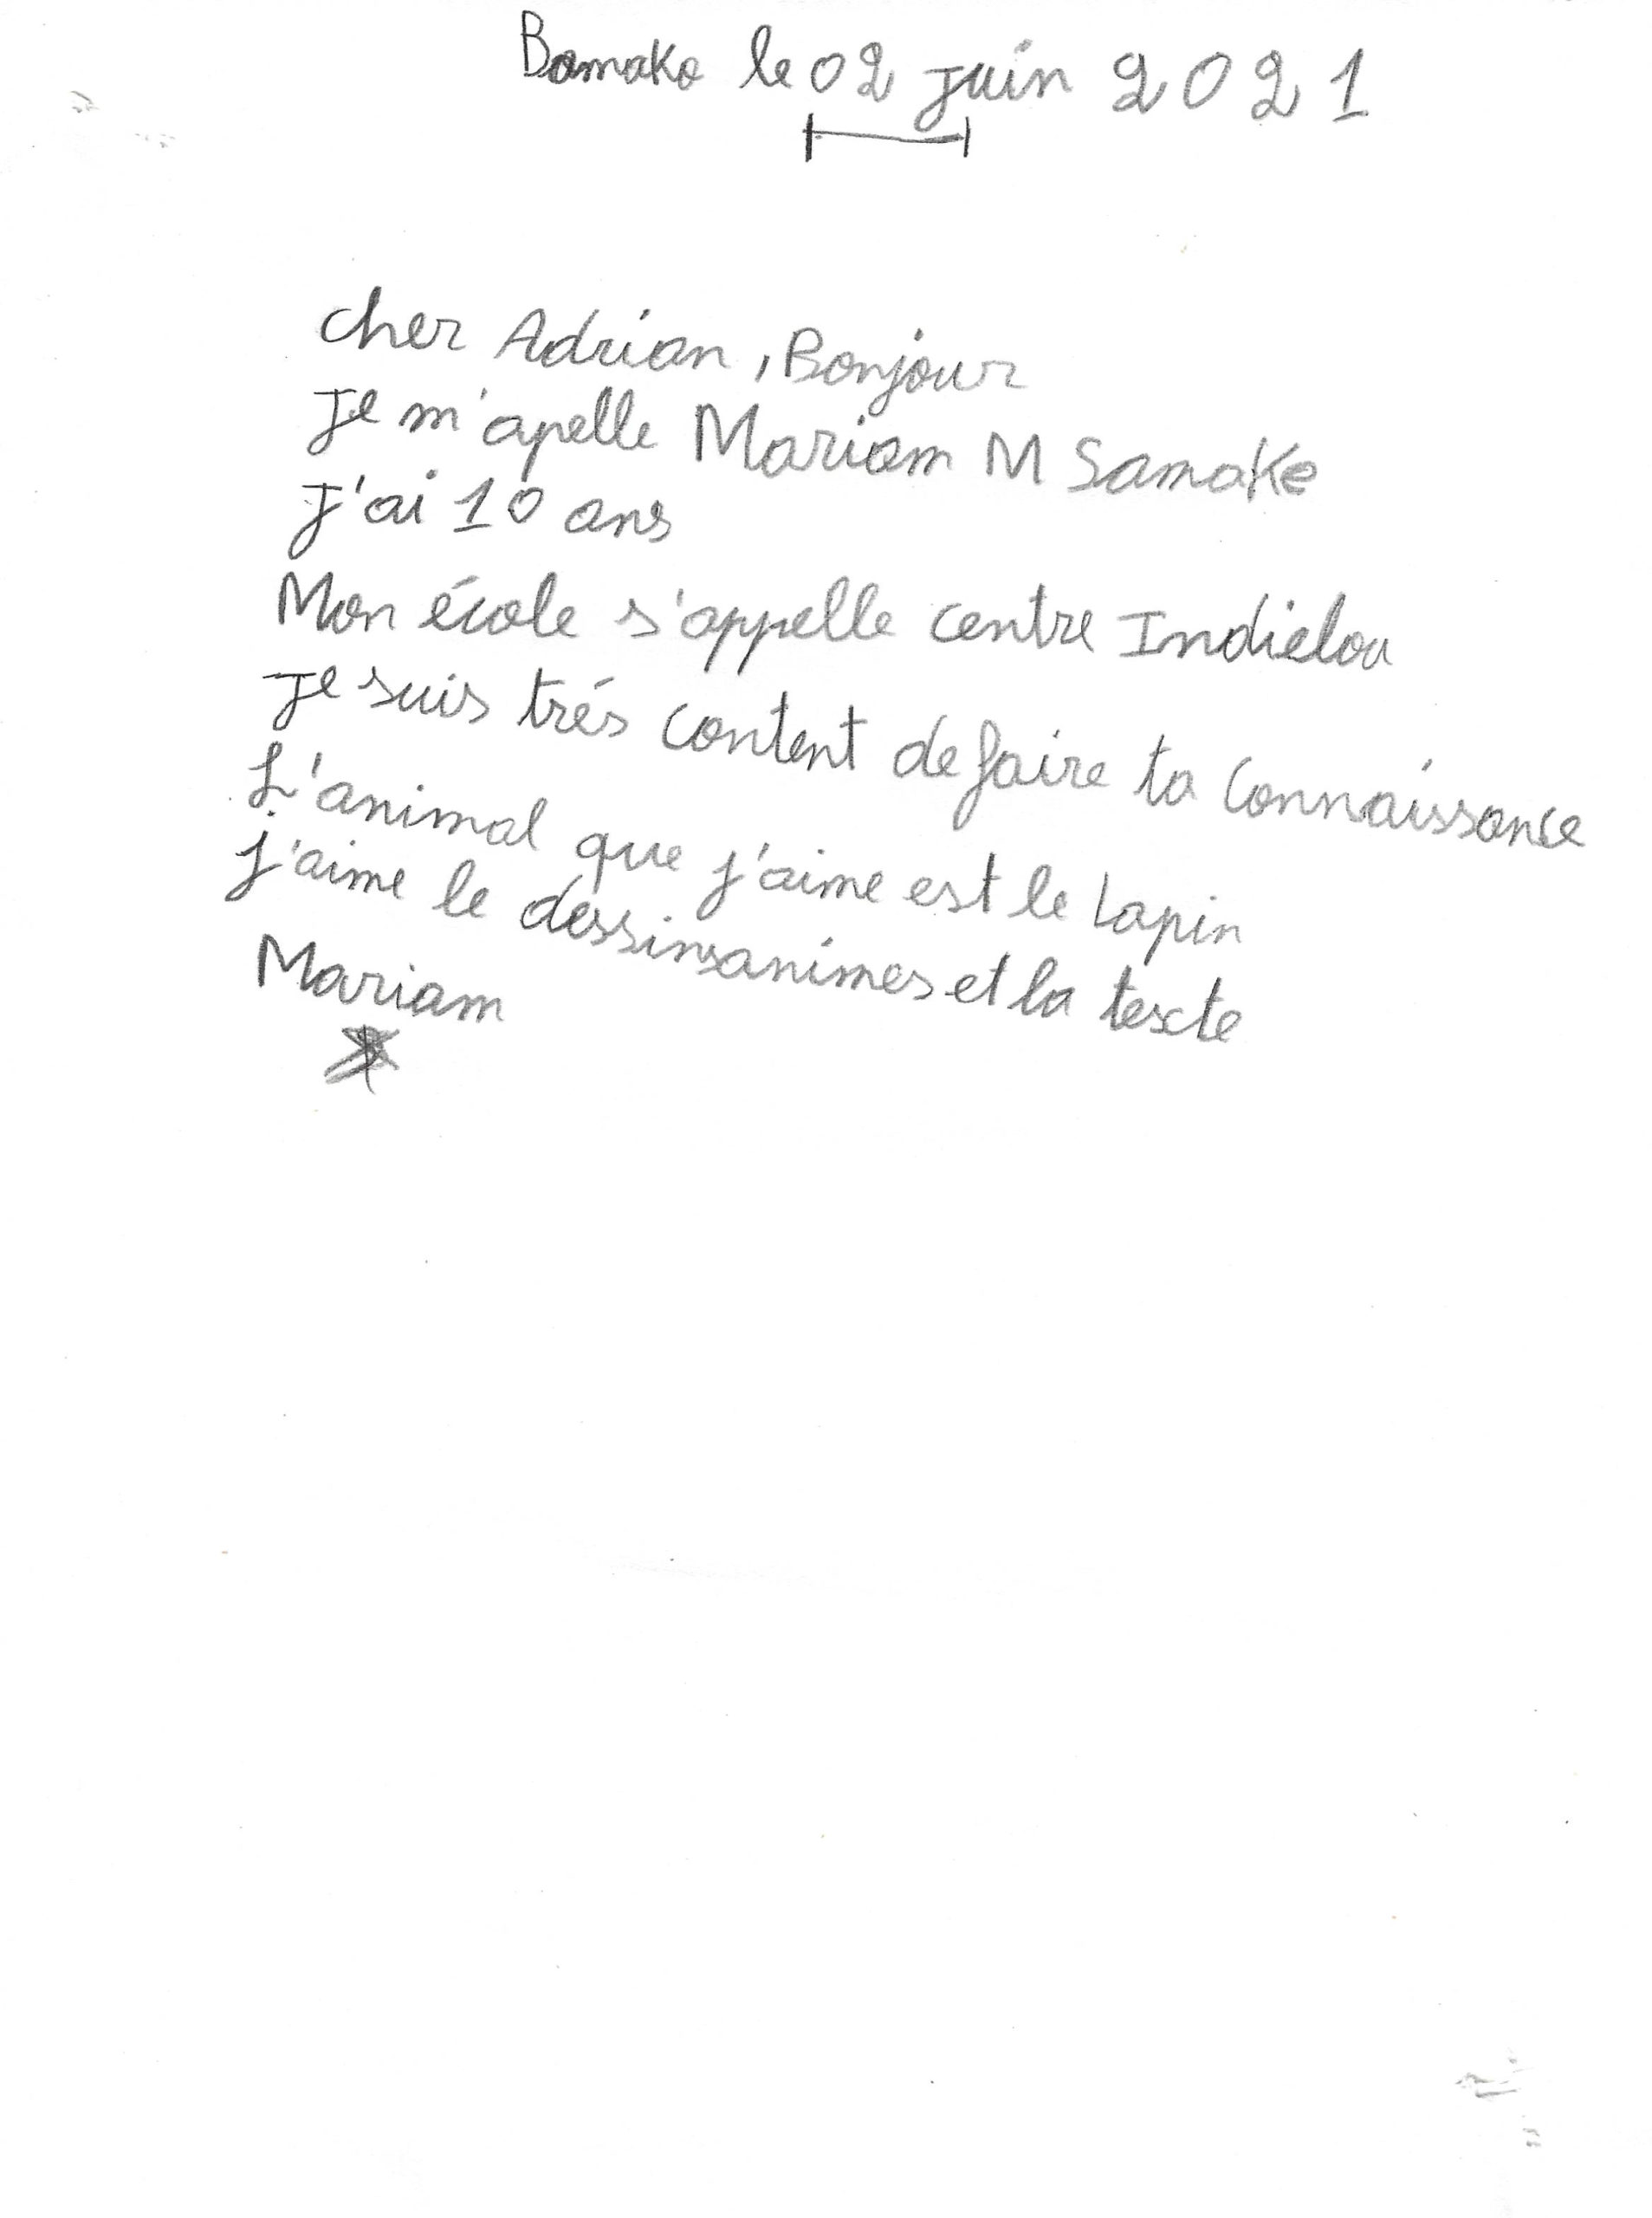 Bamako le 02 juin 2021
cher Adrian, Bonjour
Je m'apelle Mariam M Samake
J'ai 10 ans
Mon école s'appelle centre Indielou
Je suis trés content de faire ta connaissance
L'animal que j'aime est le Lapin
j'aime le dessinsanimes et la texte
Mariam